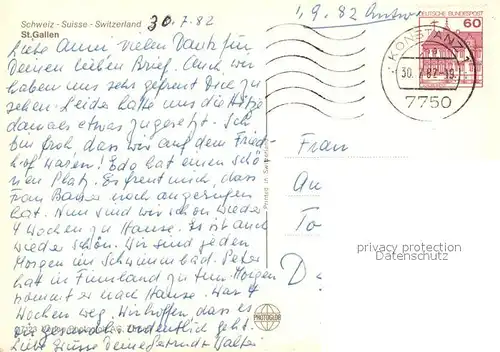 Schweiz - Suisse - Switzerland
St. Gallen
30.7.82
1.9.82 Antw
DEUTSCHE BUNDESPOST
60
KONSTANZ 1
30.7.82-19
7750
Liebe Anni vielen Dank für
Deinen lieben Brief. Auch wir
haben uns sehr gefreut Dich zu
sehen. Leider hatte uns die Hitze
damals etwas zugesetzt. Ich
bin froh, dass wir auf dem Fried
hof waren! Edo hat einen schö
nen Platz. Es freut mich, dass
Frau Bauer noch angerufen
hat. Nun sind wir schon wieder
4 Wochen zu Hause. Es ist auch
wieder schön. Wir sind jeden
Morgen im Schwimmbad. Peter
hat in Finnland zu tun. Morgen
kommt er nach Hause. War 4
Wochen weg. Wir hoffen, dass es
Dir gesundh. ordentlich geht.
Liebe Grüsse Deine Gertrud + Walter
Printed in Switzerland
PHOTOGLOB
Frau
An
To
D
privacy protection
Datenschutz